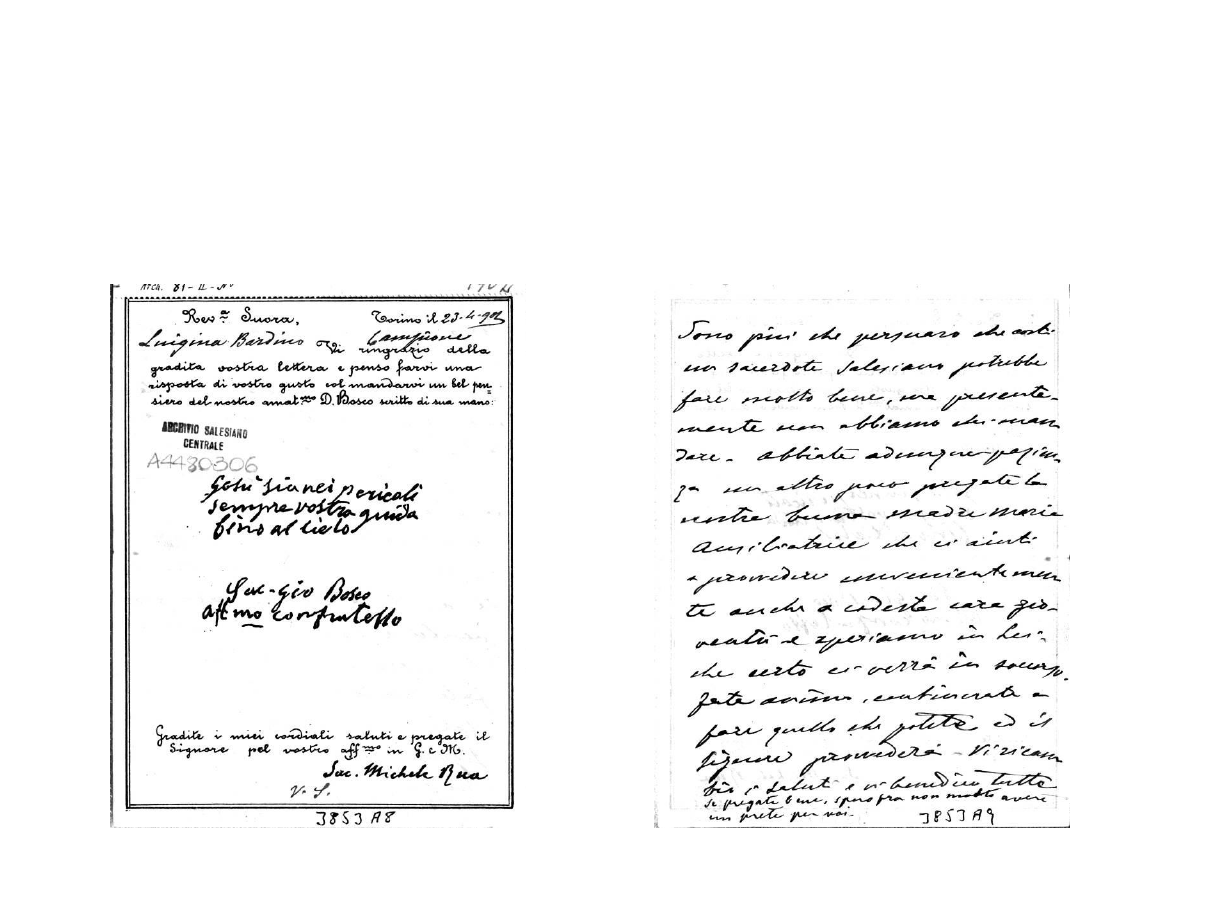 Arch. 31-II-N°
Rev.ª Suora, Torino il 23-4-902
Luigina Bardino Campione
Vi ringrazio della
gradita vostra lettera e penso farvi una
risposta di vostro gusto col mandarvi un bel pen=
siero del nostro amat.mo D. Bosco scritto di sua mano:
ARCHIVIO SALESIANO
CENTRALE
A4480306
Gesù sia nei pericoli
sempre vostra guida
fino al Cielo
Sac. Gio Bosco
aff.mo confratello
Gradite i miei cordiali saluti e pregate il
Signore pel vostro aff.mo in G. e M.
Sac. Michele Rua
V. S.
3853 A8
Sono più che persuaso che costì
un sacerdote Salesiano potrebbe
fare molto bene, ma presente-
mente non abbiamo chi man
dare. Abbiate adunque pazien
za un altro poco pregate la
nostra buona madre Maria
Ausiliatrice che ci aiuti
a provvedere convenientemen
te anche a codesta cara gio-
ventù e speriamo in Lei
che certo ci verrà in soccorso.
Fate animo, continuate a
fare quello che potete ed il
Signore provvederà - Vi ricam
bio i saluti e vi benedico tutte
se pregate bene, spero fra non molto avere
un prete per voi.
3853 A9